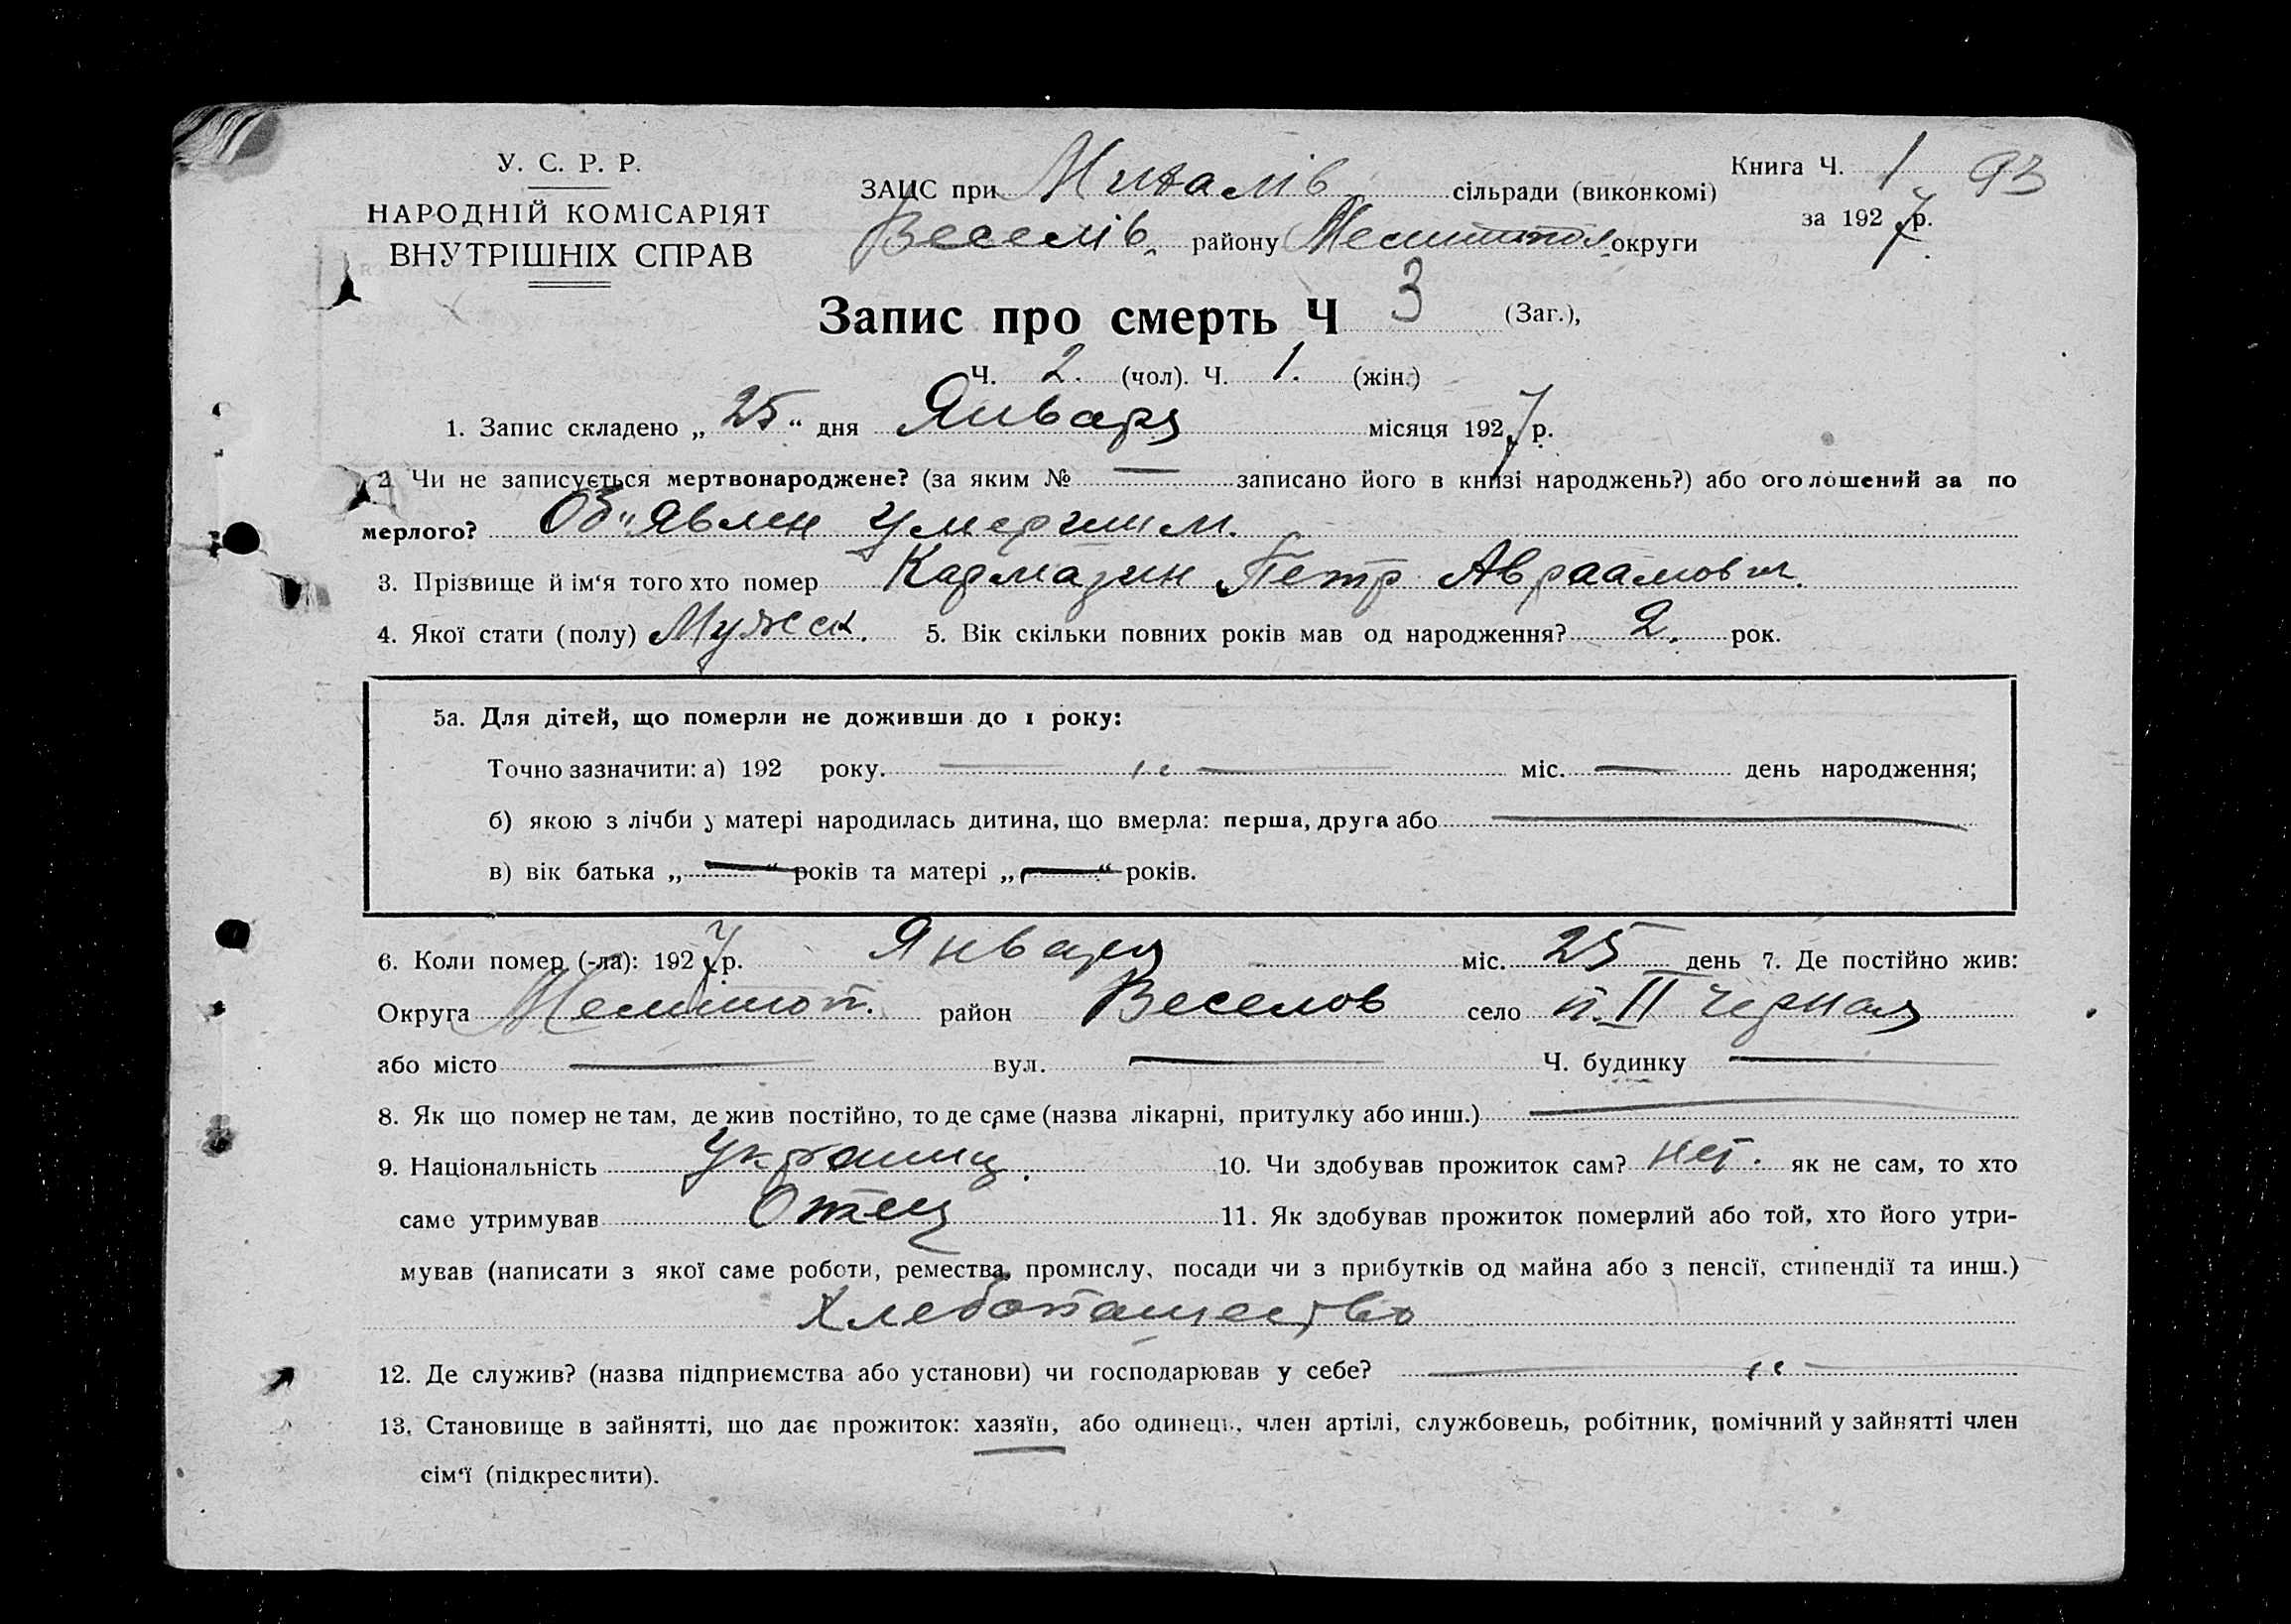 У. С. Р. Р.
НАРОДНІЙ КОМІСАРІЯТ
ВНУТРІШНІХ СПРАВ
ЗАЦС при сільради (виконкомі)
Веселів. району Мелитопол. округи
Книга Ч. 1 93
за 1927 р.
Запис про смерть Ч 3 (Заг.),
Ч. 2. (чол). Ч. 1. (жін.)
1. Запис складено „25“ дня Января місяця 1927 р.
2. Чи не записується мертвонароджене? (за яким № — записано його в книзі народжень?) або оголошений за по
мерлого? Об"явлен умершим.
3. Прізвище й ім‘я того хто помер Кармазин Петр Авраамович.
4. Якої стати (полу) Мужск. 5. Вік скільки повних років мав од народження? 2. рок.
5а. Для дітей, що померли не доживши до 1 року:
Точно зазначити: а) 192 року. — „ — міс. — день народження;
б) якою з лічби у матері народилась дитина, що вмерла: перша, друга або —
в) вік батька „—“ років та матері „—“ років.
6. Коли помер (-ла): 1927 р. Января міс. 25 день 7. Де постійно жив:
Округа Мелитоп. район Веселов село п. II Черная
або місто — вул. — Ч. будинку —
8. Як що помер не там, де жив постійно, то де саме (назва лікарні, притулку або инш.) —
9. Національність Украинц. 10. Чи здобував прожиток сам? нет. як не сам, то хто
саме утримував Отец 11. Як здобував прожиток померлий або той, хто його утри-
мував (написати з якої саме роботи, ремества, промислу, посади чи з прибутків од майна або з пенсії, стипендії та инш.)
Хлебопашество
12. Де служив? (назва підприємства або установи) чи господарював у себе? — „ —
13. Становище в зайнятті, що дає прожиток: хазяїн, або одинець, член артілі, службовець, робітник, помічний у зайнятті член
сім‘ї (підкреслити).